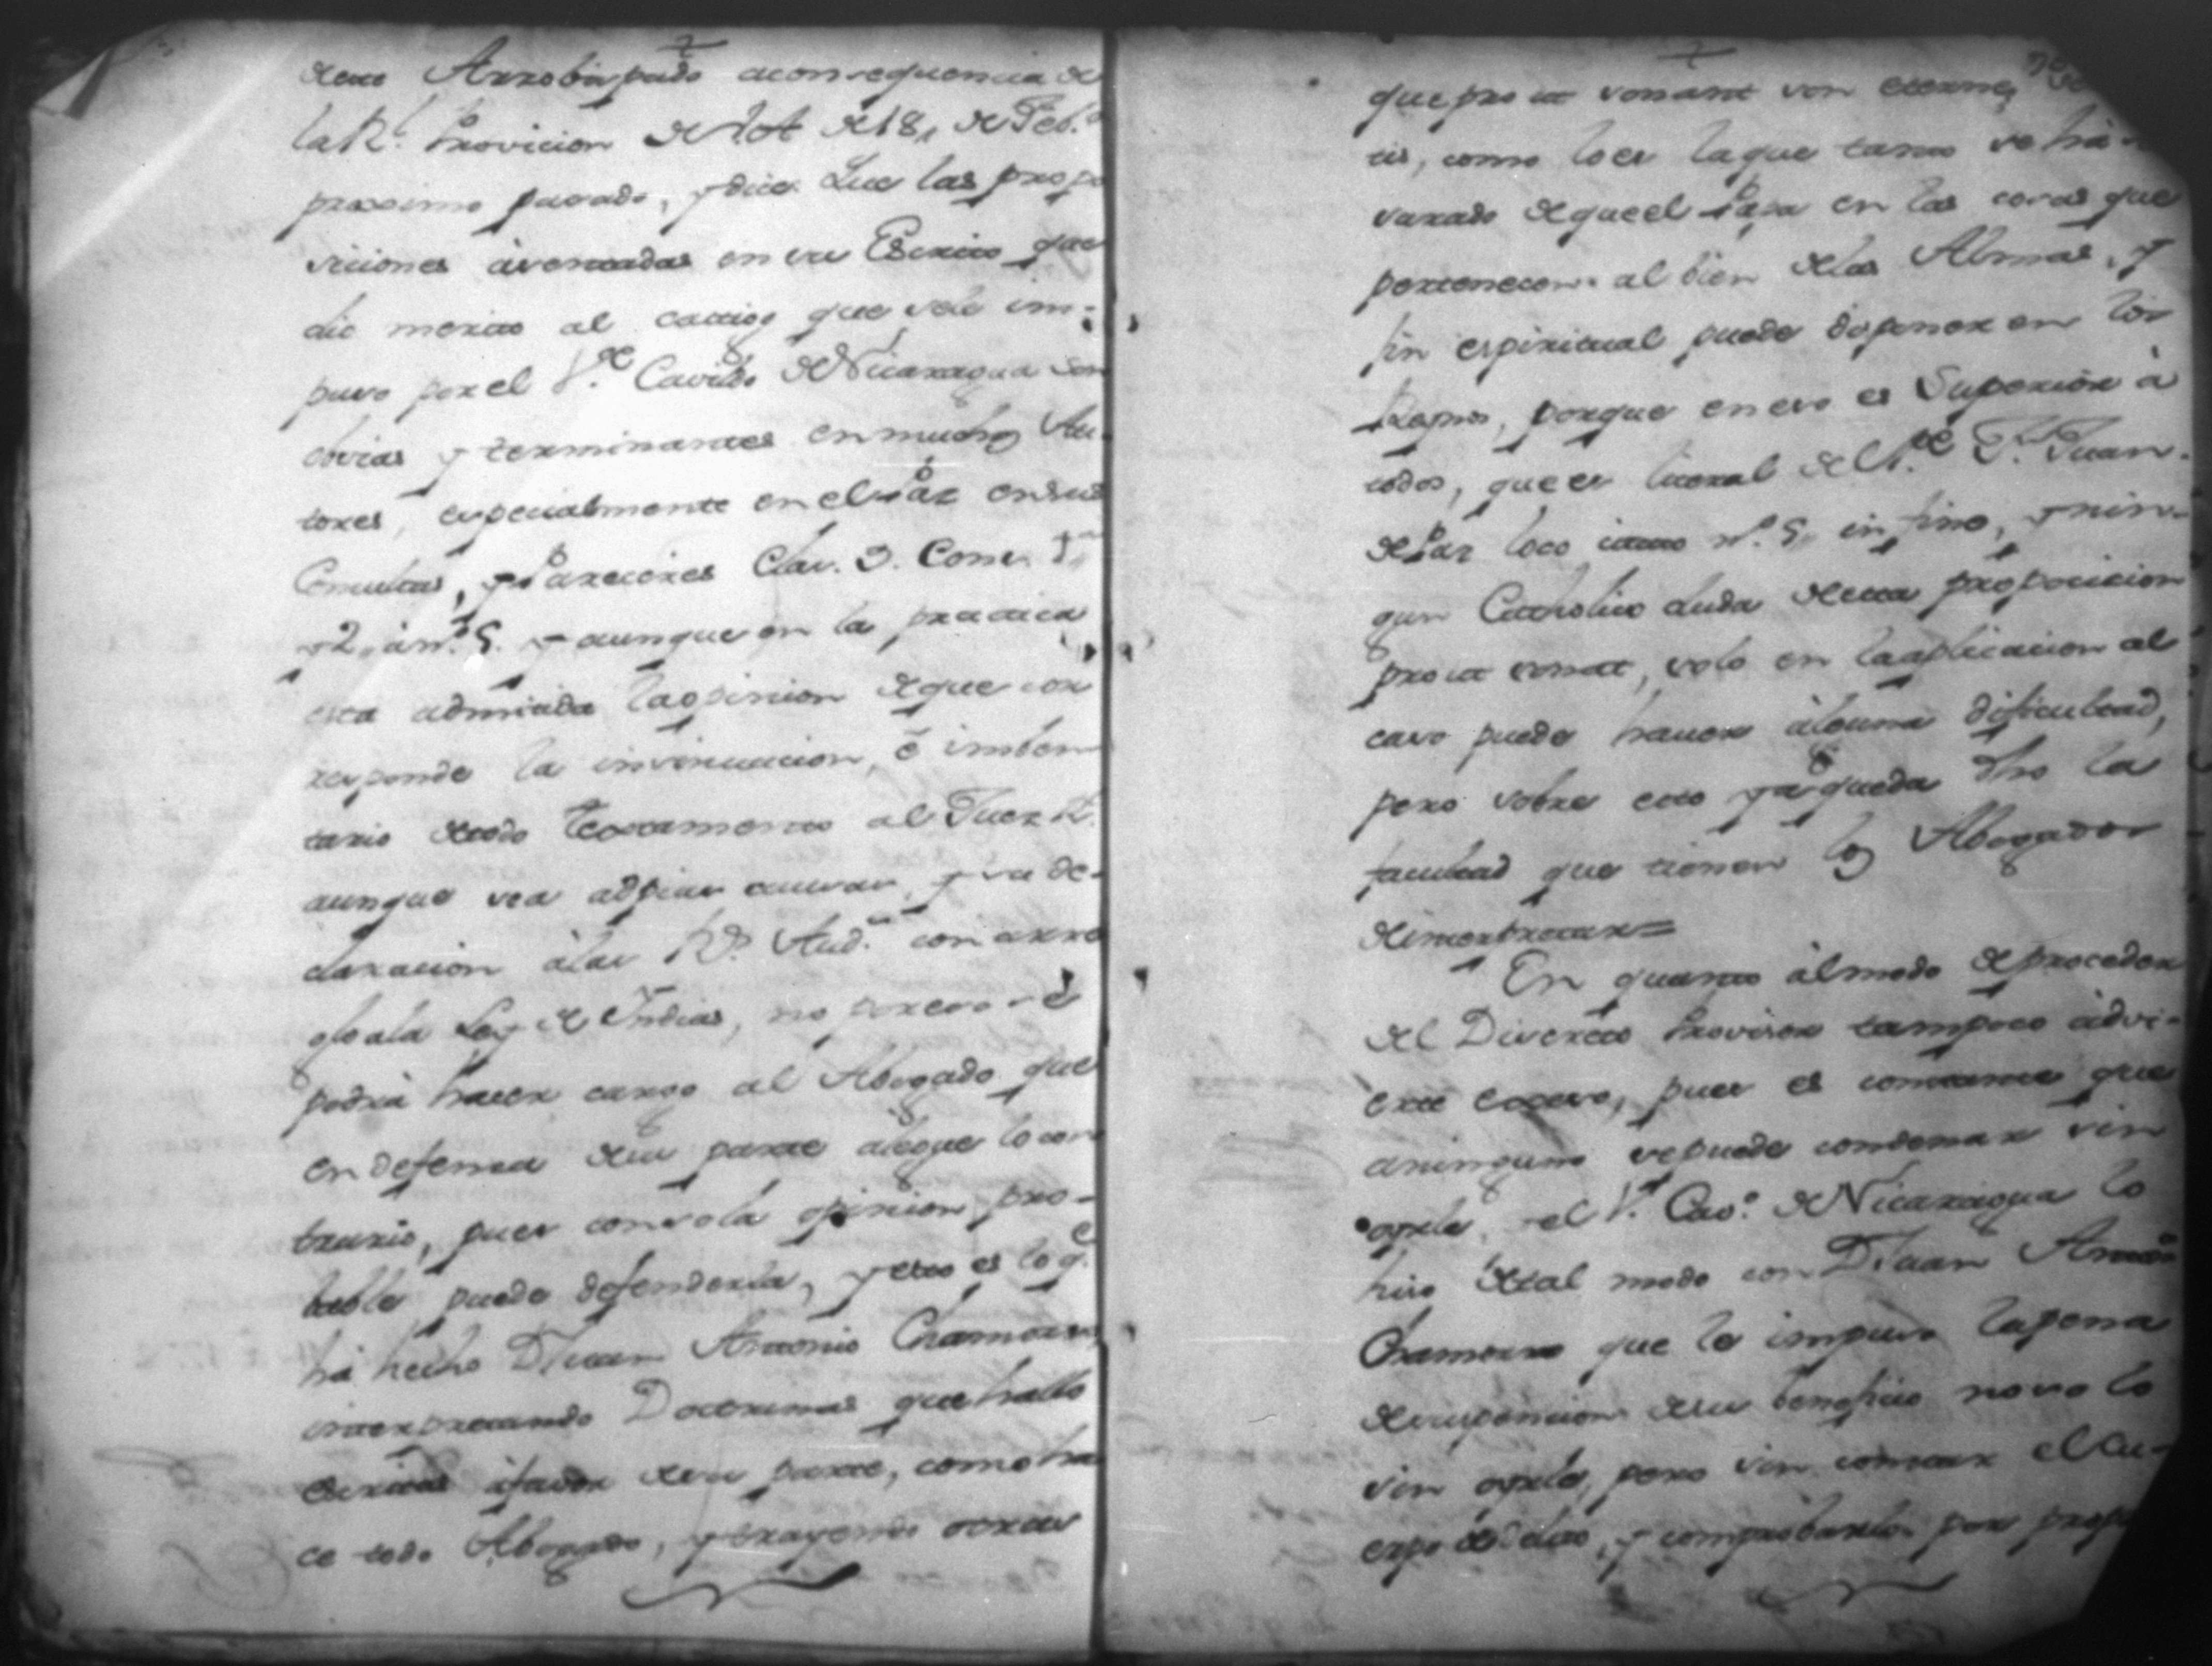 deste Arzobispado a consequencia de
la R.l Provicion de V.A. de 18,, de Feb.o
proximo pasado, y dice: Que las propo
siciones aventadas en su Escrito que
dio merito al castigo que se le im-
puso por el V.e Cavildo de Nicaragua son
obvias y terminantes en muchos Au-
tores, especialmente en el Paz en sus
Consultas, y Pareceres Clas. 3. Cons. 1,,
y 2,, a n.o 5. y aunque en la practica
esta admitida la opinion de que cor
responde la insinuacion, ó imben
tario de todo testamento al Juez R.l
aunque sea ad pias causas, y su de-
claracion á las R.s Aud.as con arre
glo a la Ley de Indias, no por eso se
podrá hacer cargo al Abogado que
en defensa de su parte alegue lo con
trario, pues con sola opinion pro-
bable puede defenderla, y esto es lo q.e
há hecho D. Juan Antonio Chamorro
interpretando Doctrinas que hallo
escritas á favor de su parte, como ha
ce todo Abogado, y trayendo otras
que prout sonant son eternas
tis, como lo es la que tanto se há
sarado de que el Papa en las cosas que
pertenecen al bien de las Almas, y
fin espiritual puede disponer en los
Reynos, porque en eso es Superior á
todos, que es literal del V.e F. Juan
de Paz loco citato n.o 5,, in fine, y nin-
gun Catholico duda de esta proposicion
prout sonat, solo en la aplicacion al
caso puede haver alguna dificultad,
pero sobre esto ya queda dho la
facultad que tienen los Abogados
de interpretar=
En quanto al modo de proceder
del Discreto Provisor tampoco advi-
erte exceso, pues es constante que
a ninguno se puede condenar sin
oyrle, y el V.e Cav.o de Nicaragua lo
hizo de tal modo con D. Juan Anto
Chamorro que le impuso la pena
de suspencion de su beneficio no solo
sin oyrle, pero sin constar el Cu-
erpo del delito, y comprobarlo por prop